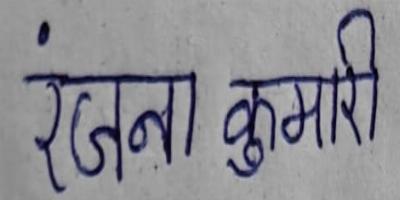 रंजना कुमारी